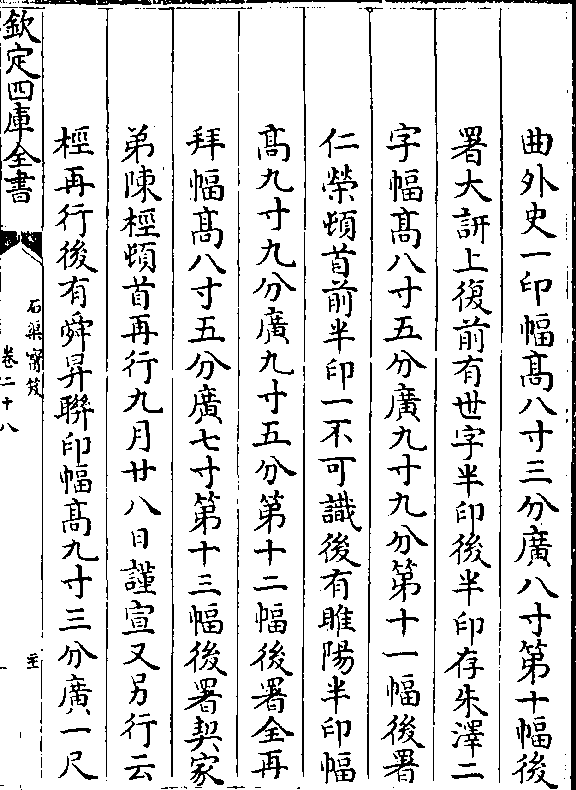 曲外史一印幅髙八寸三分廣八寸第十幅後
署大訮上復前有世字半印後半印存朱澤二
字幅髙八寸五分廣九寸九分第十一幅後署
仁榮頓首前半印一不可識後有睢陽半印幅
髙九寸九分廣九寸五分第十二幅後署全再
拜幅髙八寸五分廣七寸第十三幅後署契家
弟陳桱頓首再行九月廿八日謹宣又另行云
桱再行後有舜昇聯印幅髙九寸三分廣一尺
欽定四庫全書
石渠寶笈
卷二十八